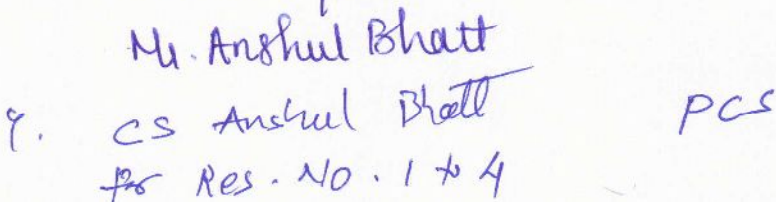 Mr. Anshul Bhatt
9. CS Anshul Bhatt PCS
for Res. No. 1 to 4